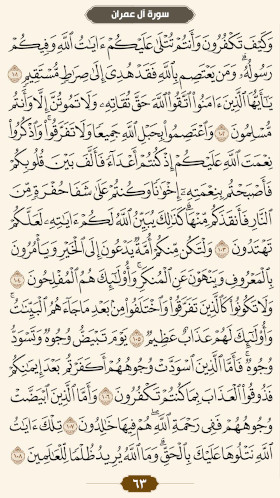 سورة آل عمران
وَكَيْفَ تَكْفُرُونَ وَأَنتُمْ تُتْلَىٰ عَلَيْكُمْ ءَايَـٰتُ ٱللَّهِ وَفِيكُمْ
رَسُولُهُۥ ۗ وَمَن يَعْتَصِم بِٱللَّهِ فَقَدْ هُدِىَ إِلَىٰ صِرَٰطٍ مُّسْتَقِيمٍ ١٠١
يَـٰٓأَيُّهَا ٱلَّذِينَ ءَامَنُوا۟ ٱتَّقُوا۟ ٱللَّهَ حَقَّ تُقَاتِهِۦ وَلَا تَمُوتُنَّ إِلَّا وَأَنتُم
مُّسْلِمُونَ ١٠٢ وَٱعْتَصِمُوا۟ بِحَبْلِ ٱللَّهِ جَمِيعًا وَلَا تَفَرَّقُوا۟ ۚ وَٱذْكُرُوا۟
نِعْمَتَ ٱللَّهِ عَلَيْكُمْ إِذْ كُنتُمْ أَعْدَآءً فَأَلَّفَ بَيْنَ قُلُوبِكُمْ
فَأَصْبَحْتُم بِنِعْمَتِهِۦٓ إِخْوَٰنًا وَكُنتُمْ عَلَىٰ شَفَا حُفْرَةٍ مِّنَ
ٱلنَّارِ فَأَنقَذَكُم مِّنْهَا ۗ كَذَٰلِكَ يُبَيِّنُ ٱللَّهُ لَكُمْ ءَايَـٰتِهِۦ لَعَلَّكُمْ
تَهْتَدُونَ ١٠٣ وَلْتَكُن مِّنكُمْ أُمَّةٌ يَدْعُونَ إِلَى ٱلْخَيْرِ وَيَأْمُرُونَ
بِٱلْمَعْرُوفِ وَيَنْهَوْنَ عَنِ ٱلْمُنكَرِ ۚ وَأُو۟لَـٰٓئِكَ هُمُ ٱلْمُفْلِحُونَ ١٠٤
وَلَا تَكُونُوا۟ كَٱلَّذِينَ تَفَرَّقُوا۟ وَٱخْتَلَفُوا۟ مِنۢ بَعْدِ مَا جَآءَهُمُ ٱلْبَيِّنَـٰتُ ۚ
وَأُو۟لَـٰٓئِكَ لَهُمْ عَذَابٌ عَظِيمٌ ١٠٥ يَوْمَ تَبْيَضُّ وُجُوهٌ وَتَسْوَدُّ
وُجُوهٌ ۚ فَأَمَّا ٱلَّذِينَ ٱسْوَدَّتْ وُجُوهُهُمْ أَكَفَرْتُم بَعْدَ إِيمَـٰنِكُمْ
فَذُوقُوا۟ ٱلْعَذَابَ بِمَا كُنتُمْ تَكْفُرُونَ ١٠٦ وَأَمَّا ٱلَّذِينَ ٱبْيَضَّتْ
وُجُوهُهُمْ فَفِى رَحْمَةِ ٱللَّهِ هُمْ فِيهَا خَـٰلِدُونَ ١٠٧ تِلْكَ ءَايَـٰتُ
ٱللَّهِ نَتْلُوهَا عَلَيْكَ بِٱلْحَقِّ ۗ وَمَا ٱللَّهُ يُرِيدُ ظُلْمًا لِّلْعَـٰلَمِينَ ١٠٨
٦٣